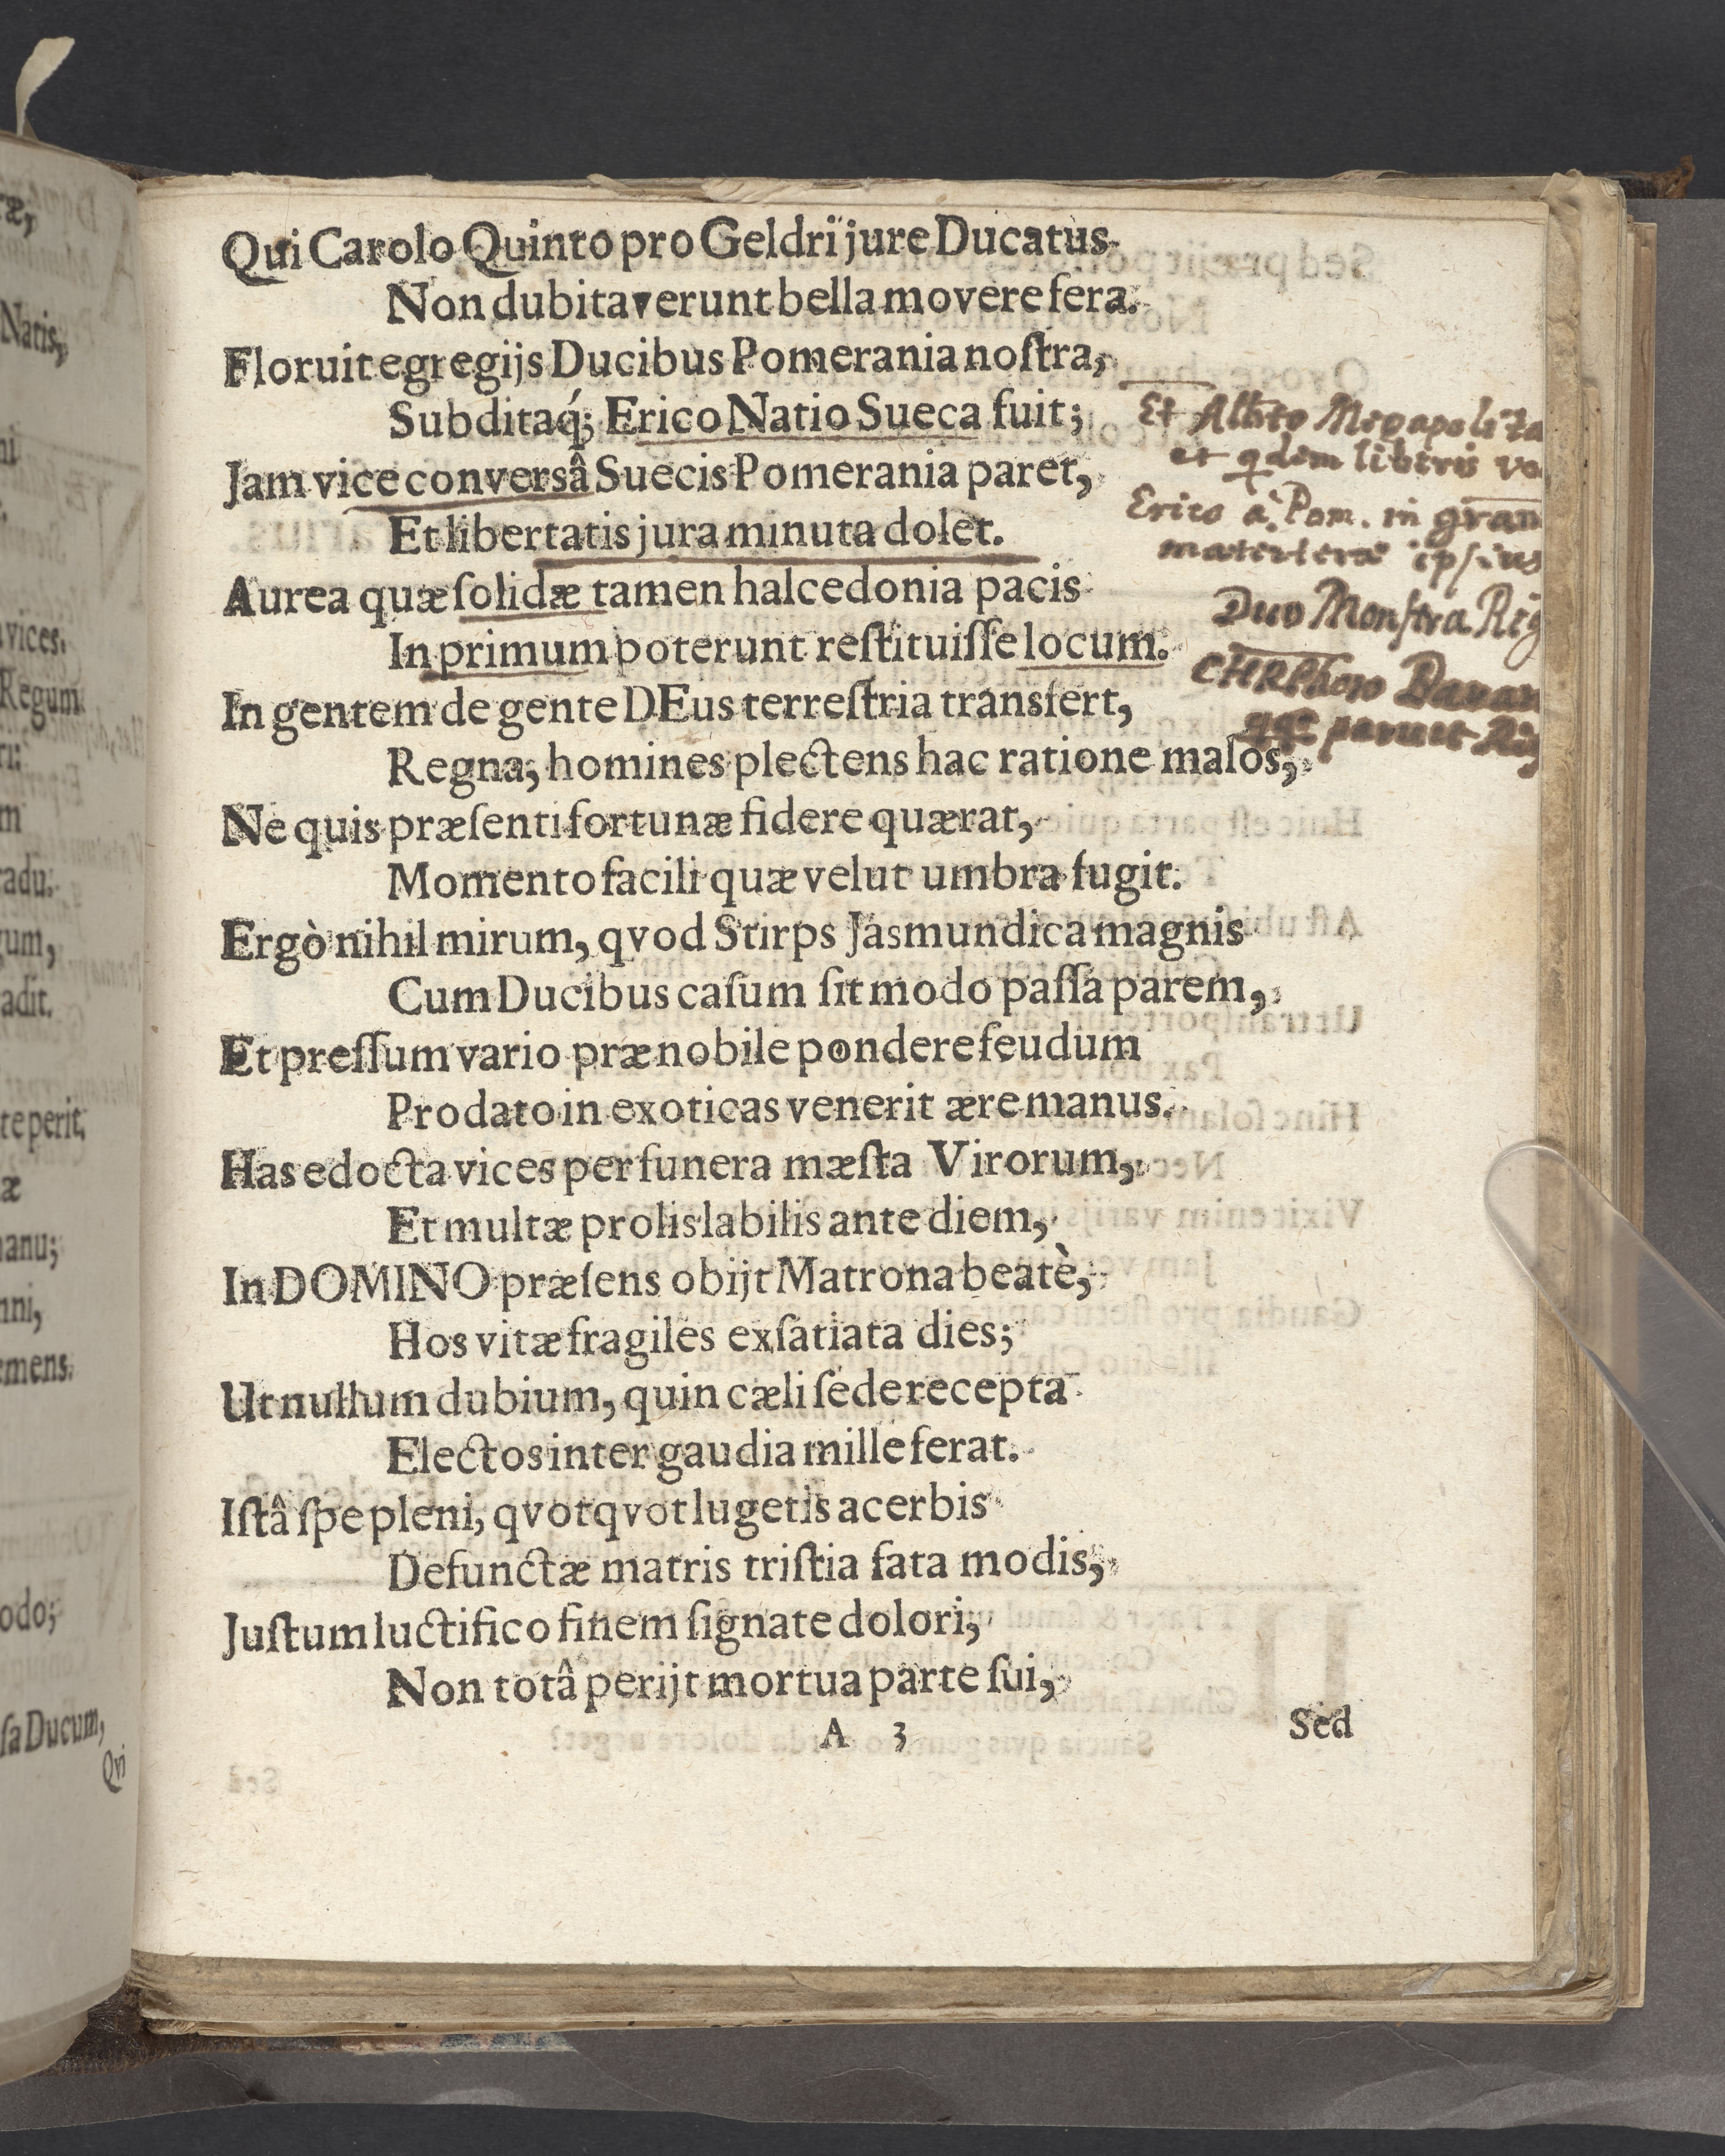 Qui Carolo Quinto pro Geldri jure Ducatus
Non dubitaverunt bella movere fera.
Floruit egregijs Ducibus Pomerania noſtra,
Subditaq́; Erico Natio Sueca fuit;
Jam vice conversâ Suecis Pomerania paret,
Et libertatis jura minuta dolet.
Aurea quæ ſolidæ tamen halcedonia pacis
In primum poterunt reſtituiſſe locum.
In gentem de gente DEus terreſtria transfert,
Regna; homines plectens hac ratione malos,
Ne quis præſenti fortunæ fidere quærat,
Momento facili quæ velut umbra fugit.
Ergò nihil mirum, qvod Stirps Jasmundica magnis
Cum Ducibus caſum ſit modo paſſa parem,
Et preſſum vario prænobile pondere feudum
Pro dato in exoticas venerit ære manus.
Has edocta vices per funera mæſta Virorum,
Et multæ prolis labilis ante diem,
In DOMINO præſens obijt Matrona beatè,
Hos vitæ fragiles exſatiata dies;
Ut nullum dubium, quin cæli ſede recepta
Electos inter gaudia mille ferat.
Iſtâ ſpe pleni, qvotqvot lugetis acerbis
Defunctæ matris triſtia fata modis,
Juſtum luctifico finem ſignate dolori,
Non totâ perijt mortua parte ſui,
A 3
Sed
Et Alb̄to Megapolita
et qdem libtris
Erico à Pom. in gran
materteræ ipſius
Duo Monſtra
CHRPhoro Bavar
paruit
Natis,
vices.
Regum
te perit,
mens.
ſa Ducum,
Qvi